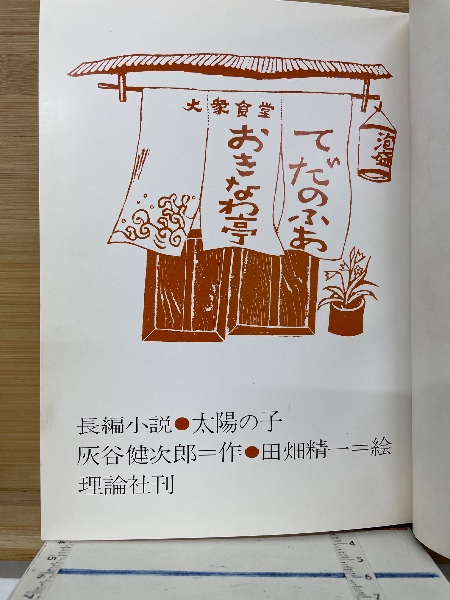 大衆食堂
てだのふあ
おきなわ亭
泡盛
長編小説●太陽の子
灰谷健次郎＝作●田畑精一＝絵
理論社刊